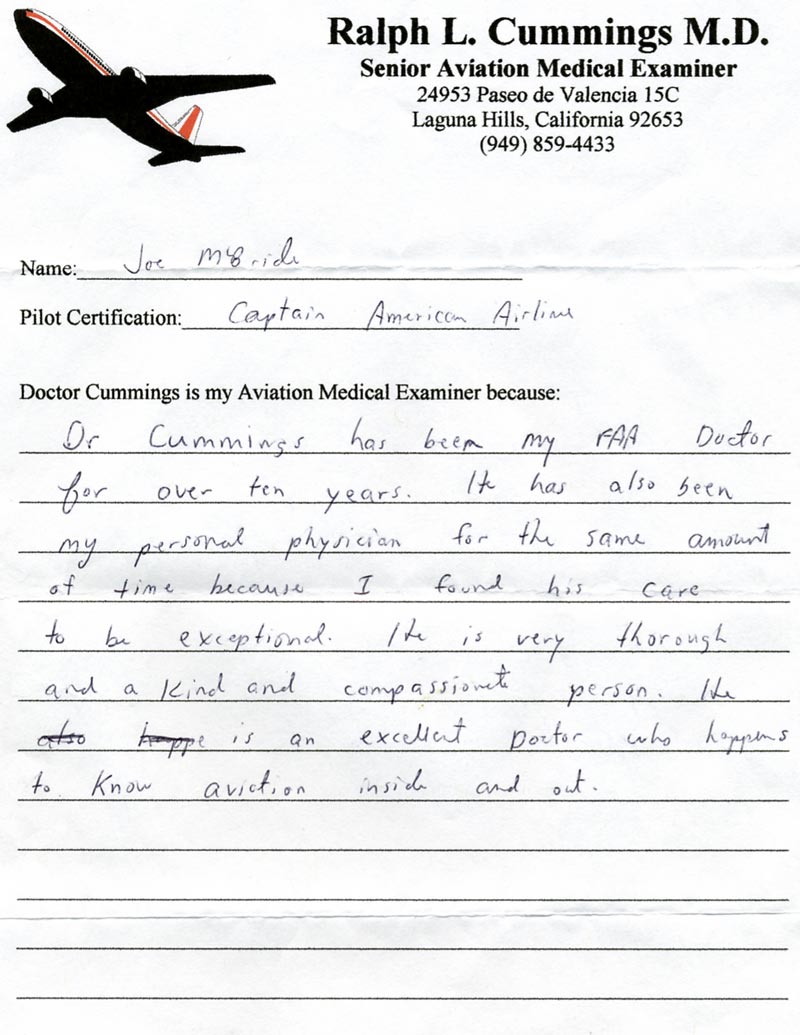 Ralph L. Cummings M.D.
Senior Aviation Medical Examiner
24953 Paseo de Valencia 15C
Laguna Hills, California 92653
(949) 859-4433
Name: Joe McBride
Pilot Certification: Captain American Airline
Doctor Cummings is my Aviation Medical Examiner because:
Dr Cummings has been my FAA Doctor
for over ten years. He has also been
my personal physician for the same amount
of time because I found his care
to be exceptional. He is very thorough
and a kind and compassionate person. He
also happe is an excellent Doctor who happens
to know aviation inside and out.